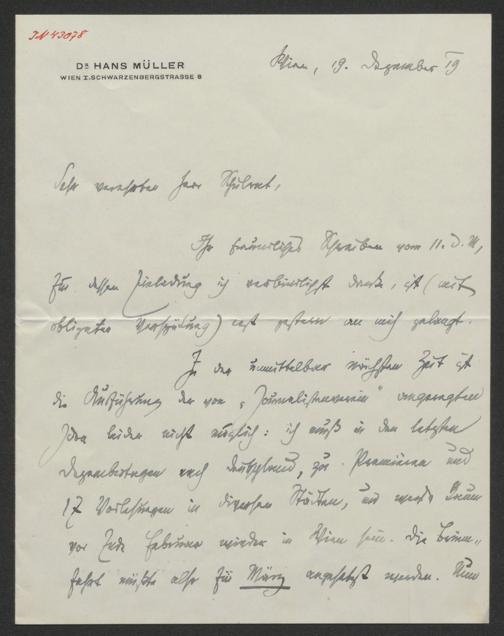 IN 43078
DR HANS MÜLLER
WIEN I. SCHWARZENBERGSTRASSE 8
Wien, 19. Dezember 19
Sehr verehrter Herr Schulrat,
Ihr freundliches Schreiben vom 11. d. M.,
für dessen Einladung ich verbindlichst danke, ist (mit
obligater Verspätung) erst gestern an mich gelangt.
In der unmittelbar nächsten Zeit ist
die Ausführung der vom „Journalistenverein“ angeregten
Idee leider nicht möglich: ich muß in den letzten
Dezembertagen nach Deutschland, zu Premieren und
17 Vorlesungen in diversen Städten, und werde kaum
vor Ende Februar wieder in Wien sein. Die
müßte also für März angesetzt werden. Nun